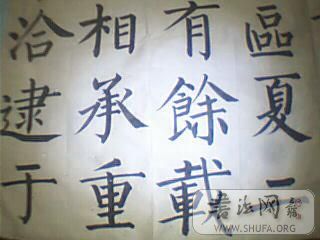 區夏二
有餘載
相承重
洽逮于
书法网
WWW.SHUFA.ORG